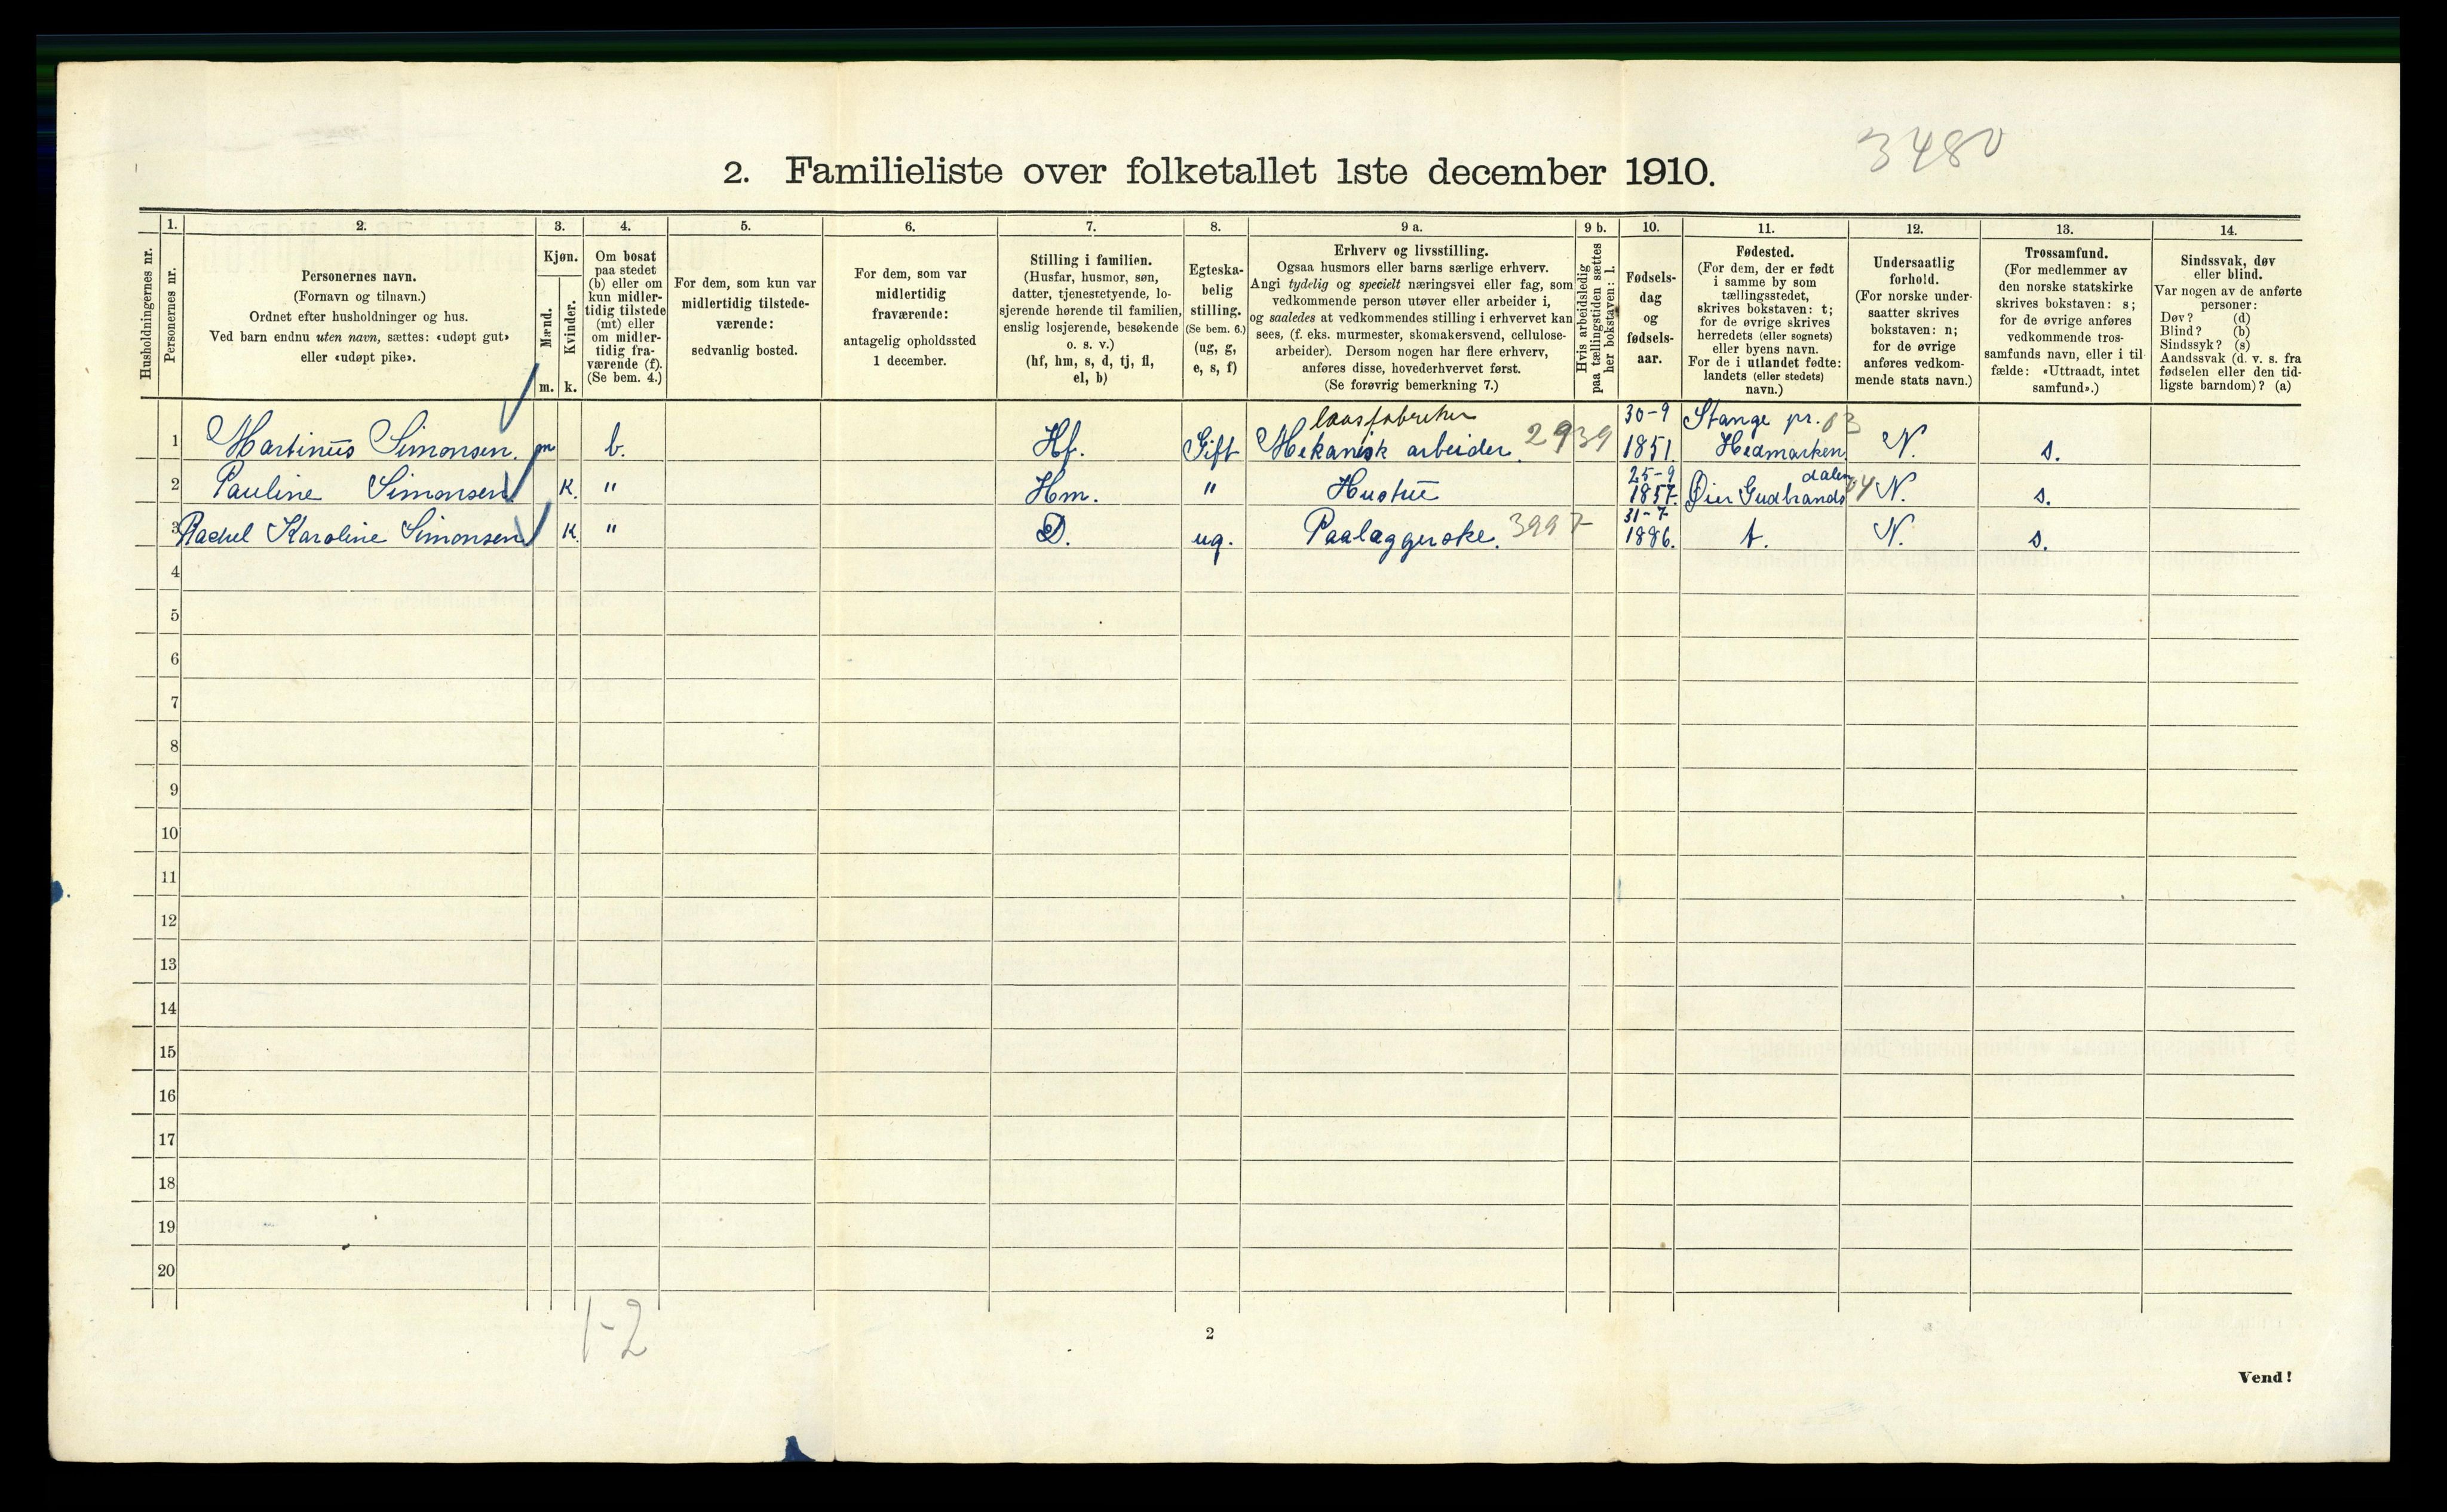 3480
2. Familieliste over folketallet 1ste december 1910.
Husholdningernes nr.
1.
Personernes nr.
2.
Personernes navn.
(Fornavn og tilnavn.)
Ordnet efter husholdninger og hus.
Ved barn endnu uten navn, sættes: «udøpt gut»
eller «udøpt pike».
3.
Kjøn.
Mænd.
m.
Kvinder.
k.
4.
Om bosat
paa stedet
(b) eller om
kun midler-
tidig tilstede
(mt) eller
om midler-
tidig fra-
værende (f).
(Se bem. 4.)
5.
For dem, som kun var
midlertidig tilstede-
værende:
sedvanlig bosted.
6.
For dem, som var
midlertidig
fraværende:
antagelig opholdssted
1 december.
7.
Stilling i familien.
(Husfar, husmor, søn,
datter, tjenestetyende, lo-
sjerende hørende til familien,
enslig losjerende, besøkende
o. s. v.)
(hf, hm, s, d, tj, fl,
el, b)
8.
Egteska-
belig
stilling.
(Se bem. 6.)
(ug, g,
e, s, f)
9 a.
Erhverv og livsstilling.
Ogsaa husmors eller barns særlige erhverv.
Angi tydelig og specielt næringsvei eller fag, som
vedkommende person utøver eller arbeider i,
og saaledes at vedkommendes stilling i erhvervet kan
sees, (f. eks. murmester, skomakersvend, cellulose-
arbeider). Dersom nogen har flere erhverv,
anføres disse, hovederhvervet først.
(Se forøvrig bemerkning 7.)
9 b.
Hvis arbeidsledig
paa tællingstiden sættes
her bokstaven: l.
10.
Fødsels-
dag
og
fødsels-
aar.
11.
Fødested.
(For dem, der er født
i samme by som
tællingsstedet,
skrives bokstaven: t;
for de øvrige skrives
herredets (eller sognets)
eller byens navn.
For de i utlandet fødte:
landets (eller stedets)
navn.)
12.
Undersaatlig
forhold.
(For norske under-
saatter skrives
bokstaven: n;
for de øvrige
anføres vedkom-
mende stats navn.)
13.
Trossamfund.
(For medlemmer av
den norske statskirke
skrives bokstaven: s;
for de øvrige anføres
vedkommende tros-
samfunds navn, eller i til-
fælde: «Uttraadt, intet
samfund».)
14.
Sindssvak, døv
eller blind.
Var nogen av de anførte
personer:
Døv? (d)
Blind? (b)
Sindssyk? (s)
Aandssvak (d. v. s. fra
fødselen eller den tid-
ligste barndom)? (a)
laasfabriker 30-9 Stange pr. 03
1 Martinus Simonsen. m b. Hf. Gift Mekanisk arbeider. 2939 1851. Hedmarken N. s.
25-9 dalen
2 Pauline Simonsen K. " Hm. " Hustru 1857. Øier Gudbrands 04 N. s.
31-7
3 Rachel Karoline Simonsen K. " D. ug. Paalæggerske. 3997 1886. t. N. s.
4
5
6
7
8
9
10
11
12
13
14
15
16
17
18
19
20
1-2
2
Vend!